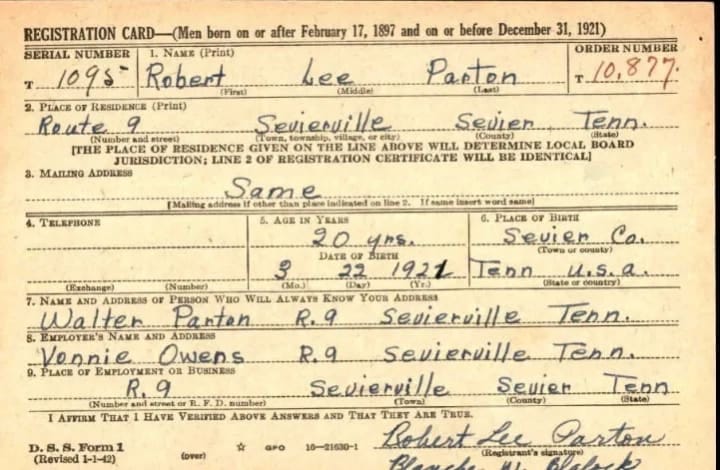 REGISTRATION CARD—(Men born on or after February 17, 1897 and on or before December 31, 1921)
SERIAL NUMBER 1. NAME (Print) ORDER NUMBER
T 1095 Robert Lee Parton T 10,877.
(First) (Middle) (Last)
2. PLACE OF RESIDENCE (Print)
Route 9 Sevierville Sevier Tenn.
(Number and street) (Town, township, village, or city) (County) (State)
[THE PLACE OF RESIDENCE GIVEN ON THE LINE ABOVE WILL DETERMINE LOCAL BOARD
JURISDICTION; LINE 2 OF REGISTRATION CERTIFICATE WILL BE IDENTICAL]
3. MAILING ADDRESS
Same
[Mailing address if other than place indicated on line 2. If same insert word same]
4. TELEPHONE 5. AGE IN YEARS 6. PLACE OF BIRTH
20 yrs. Sevier Co.
DATE OF BIRTH (Town or county)
3 22 1921 Tenn U.S.A.
(Exchange) (Number) (Mo.) (Day) (Yr.) (State or country)
7. NAME AND ADDRESS OF PERSON WHO WILL ALWAYS KNOW YOUR ADDRESS
Walter Parton R.9 Sevierville Tenn.
8. EMPLOYER'S NAME AND ADDRESS
Vonnie Owens R.9 Sevierville Tenn.
9. PLACE OF EMPLOYMENT OR BUSINESS
R.9 Sevierville Sevier Tenn
(Number and street or R. F. D. number) (Town) (County) (State)
I AFFIRM THAT I HAVE VERIFIED ABOVE ANSWERS AND THAT THEY ARE TRUE.
D. S. S. Form 1 Robert Lee Parton
(Revised 1-1-42) (over) ☆ GPO 16—21630-1 (Registrant's signature)
Blanche W. Blalock